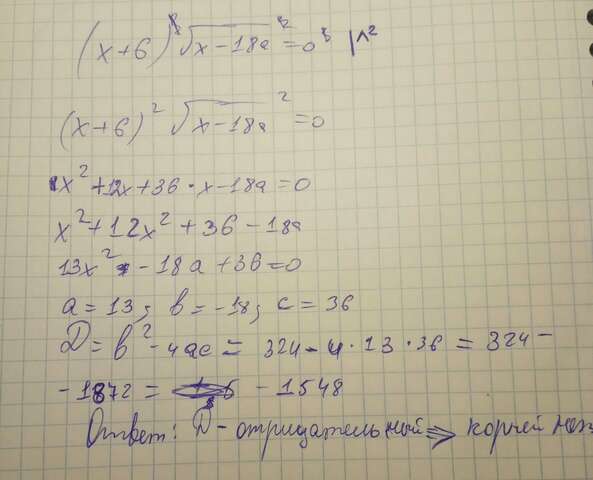 (x+6)² √x-18a ² = 0 |^2
(x+6)² √x-18a ² = 0
x² + 12x + 36 · x - 18a = 0
x² + 12x² + 36 - 18a
13x² - 18a + 36 = 0
a = 13; b = -18; c = 36
D = b² - 4ac = 324 - 4 · 13 · 36 = 324 -
- 1872 = - 1548
Ответ: D - отрицательный => корней нет